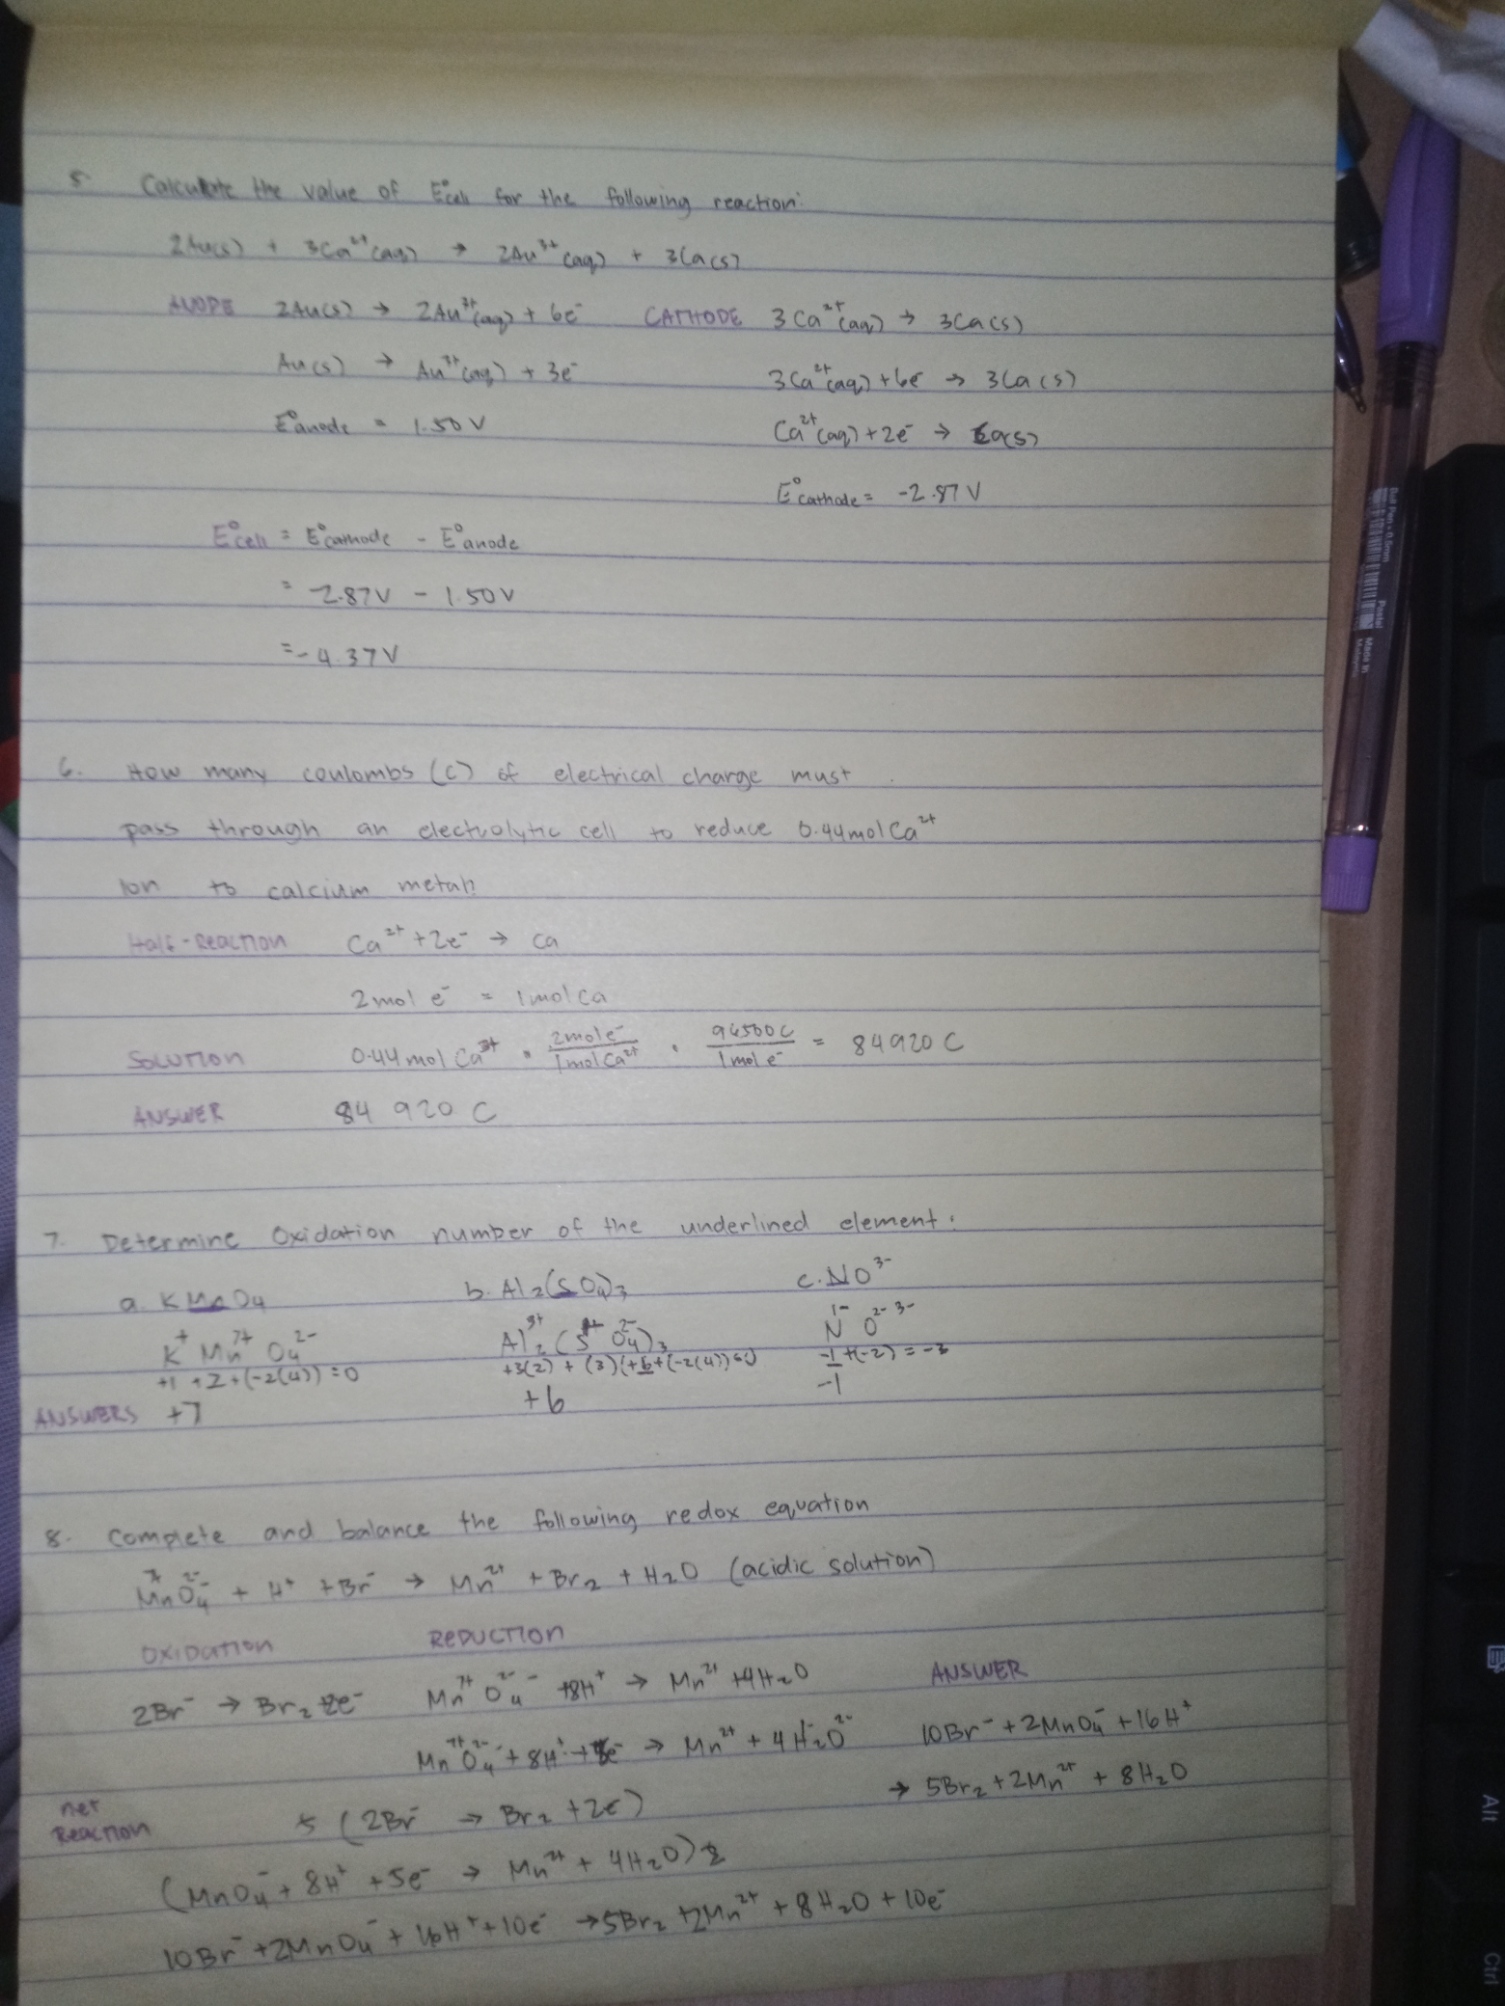 5. Calculate the value of E°cell for the following reaction:
2Au(s) + 3Ca²⁺(aq) → 2Au³⁺(aq) + 3Ca(s)
ANODE 2Au(s) → 2Au³⁺(aq) + 6e⁻ CATHODE 3Ca²⁺(aq) → 3Ca(s)
Au(s) → Au³⁺(aq) + 3e⁻ 3Ca²⁺(aq) + 6e⁻ → 3Ca(s)
E°anode = 1.50 V Ca²⁺(aq) + 2e⁻ → Ca(s)
E°cathode = -2.87 V
E°cell = E°cathode - E°anode
= 2.87V - 1.50V
= -4.37V
6. How many coulombs (C) of electrical charge must
pass through an electrolytic cell to reduce 0.44mol Ca²⁺
ion to calcium metal?
Half-Reaction Ca²⁺ + 2e⁻ → Ca
2mol e⁻ = 1mol Ca
SOLUTION 0.44 mol Ca²⁺ · 2mole⁻/1molCa²⁺ · 96500C/1mol e⁻ = 84920 C
ANSWER 84 920 C
7. Determine Oxidation number of the underlined element:
a. KMnO4 b. Al2(SO4)3 c. NO³⁻
K⁺ Mn⁷⁺ O4²⁻ Al2³⁺ (S O4²⁻)3 N¹⁻ O²⁻ ³⁻
+1 + 7 + (-2(4)) = 0 +3(2) + (3)(+6 + (-2(4)) = 0 -1 + (-2) = -3
ANSWERS +7 +6 -1
8. Complete and balance the following redox equation
MnO4⁻ + H⁺ + Br⁻ → Mn²⁺ + Br2 + H2O (acidic solution)
OXIDATION REDUCTION
2Br⁻ → Br2 + 2e⁻ Mn⁷⁺O4²⁻ ⁻ + 8H⁺ → Mn²⁺ + 4H2O ANSWER
Mn⁷⁺O4²⁻ ⁻ + 8H⁺ + 5e⁻ → Mn²⁺ + 4H2O²⁻ 10Br⁻ + 2MnO4⁻ + 16H⁺
→ 5Br2 + 2Mn²⁺ + 8H2O
net Reaction 5 (2Br⁻ → Br2 + 2e⁻)
(MnO4⁻ + 8H⁺ + 5e⁻ → Mn²⁺ + 4H2O) 2
10Br⁻ + 2MnO4⁻ + 16H⁺ + 10e⁻ → 5Br2 + 2Mn²⁺ + 8H2O + 10e⁻
Ball Pen • 0.5mm
Pastel
Made in
Malaysia
Alt
Ctrl